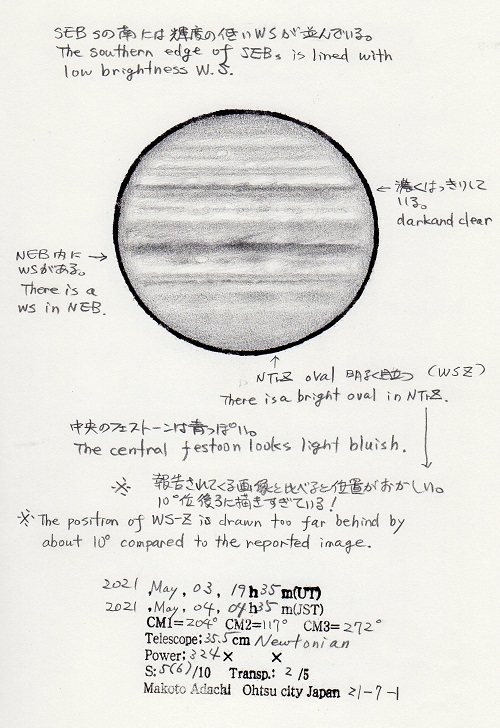 SEBsの南には輝度の低いWSが並んでいる。
The southern edge of SEBs is lined with
low brightness W.S.
← 濃くはっきりして
いる。
darkand clear
NEB内に →
WSがある。
There is a
WS in NEB.
↑
NTrZ oval 明るく目立つ (WSZ)
There is a bright oval in NTrZ.
中央のフェストーンは青っぽい。
The central festoon looks light bluish.
※ 報告されてくる画像と比べると位置がおかしい。
10°位後ろに描きすぎている!
※ The position of WS-Z is drawn too far behind by
about 10° compared to the reported image.
2021 ,May, 03, 19h35m(UT)
2021 ,May, 04, 04h35m(JST)
CM1=204° CM2=117° CM3=272°
Telescope:35.5cm Newtonian
Power:324× ×
S:5(6)/10 Transp.: 2 /5
Makoto Adachi Ohtsu city Japan 21-7-1